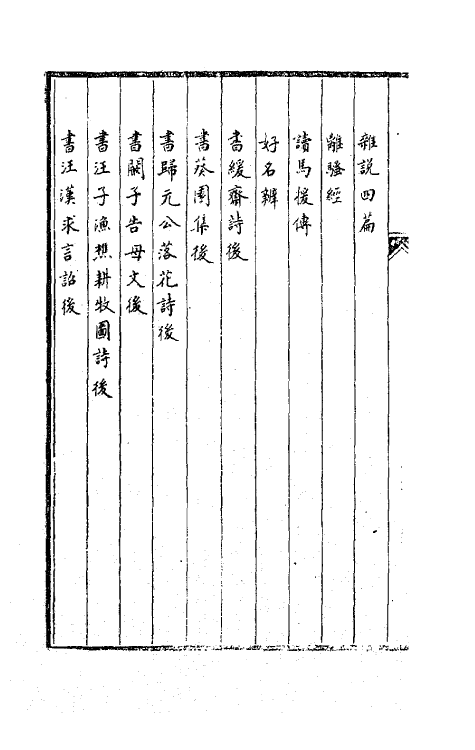 雜說四篇
離騷經
讀馬援傳
好名辯
書緩齋詩後
書葵園集後
書歸元公落花詩後
書闕子告母文後
書汪子漁樵耕牧圖詩後
書汪漢求言詔後